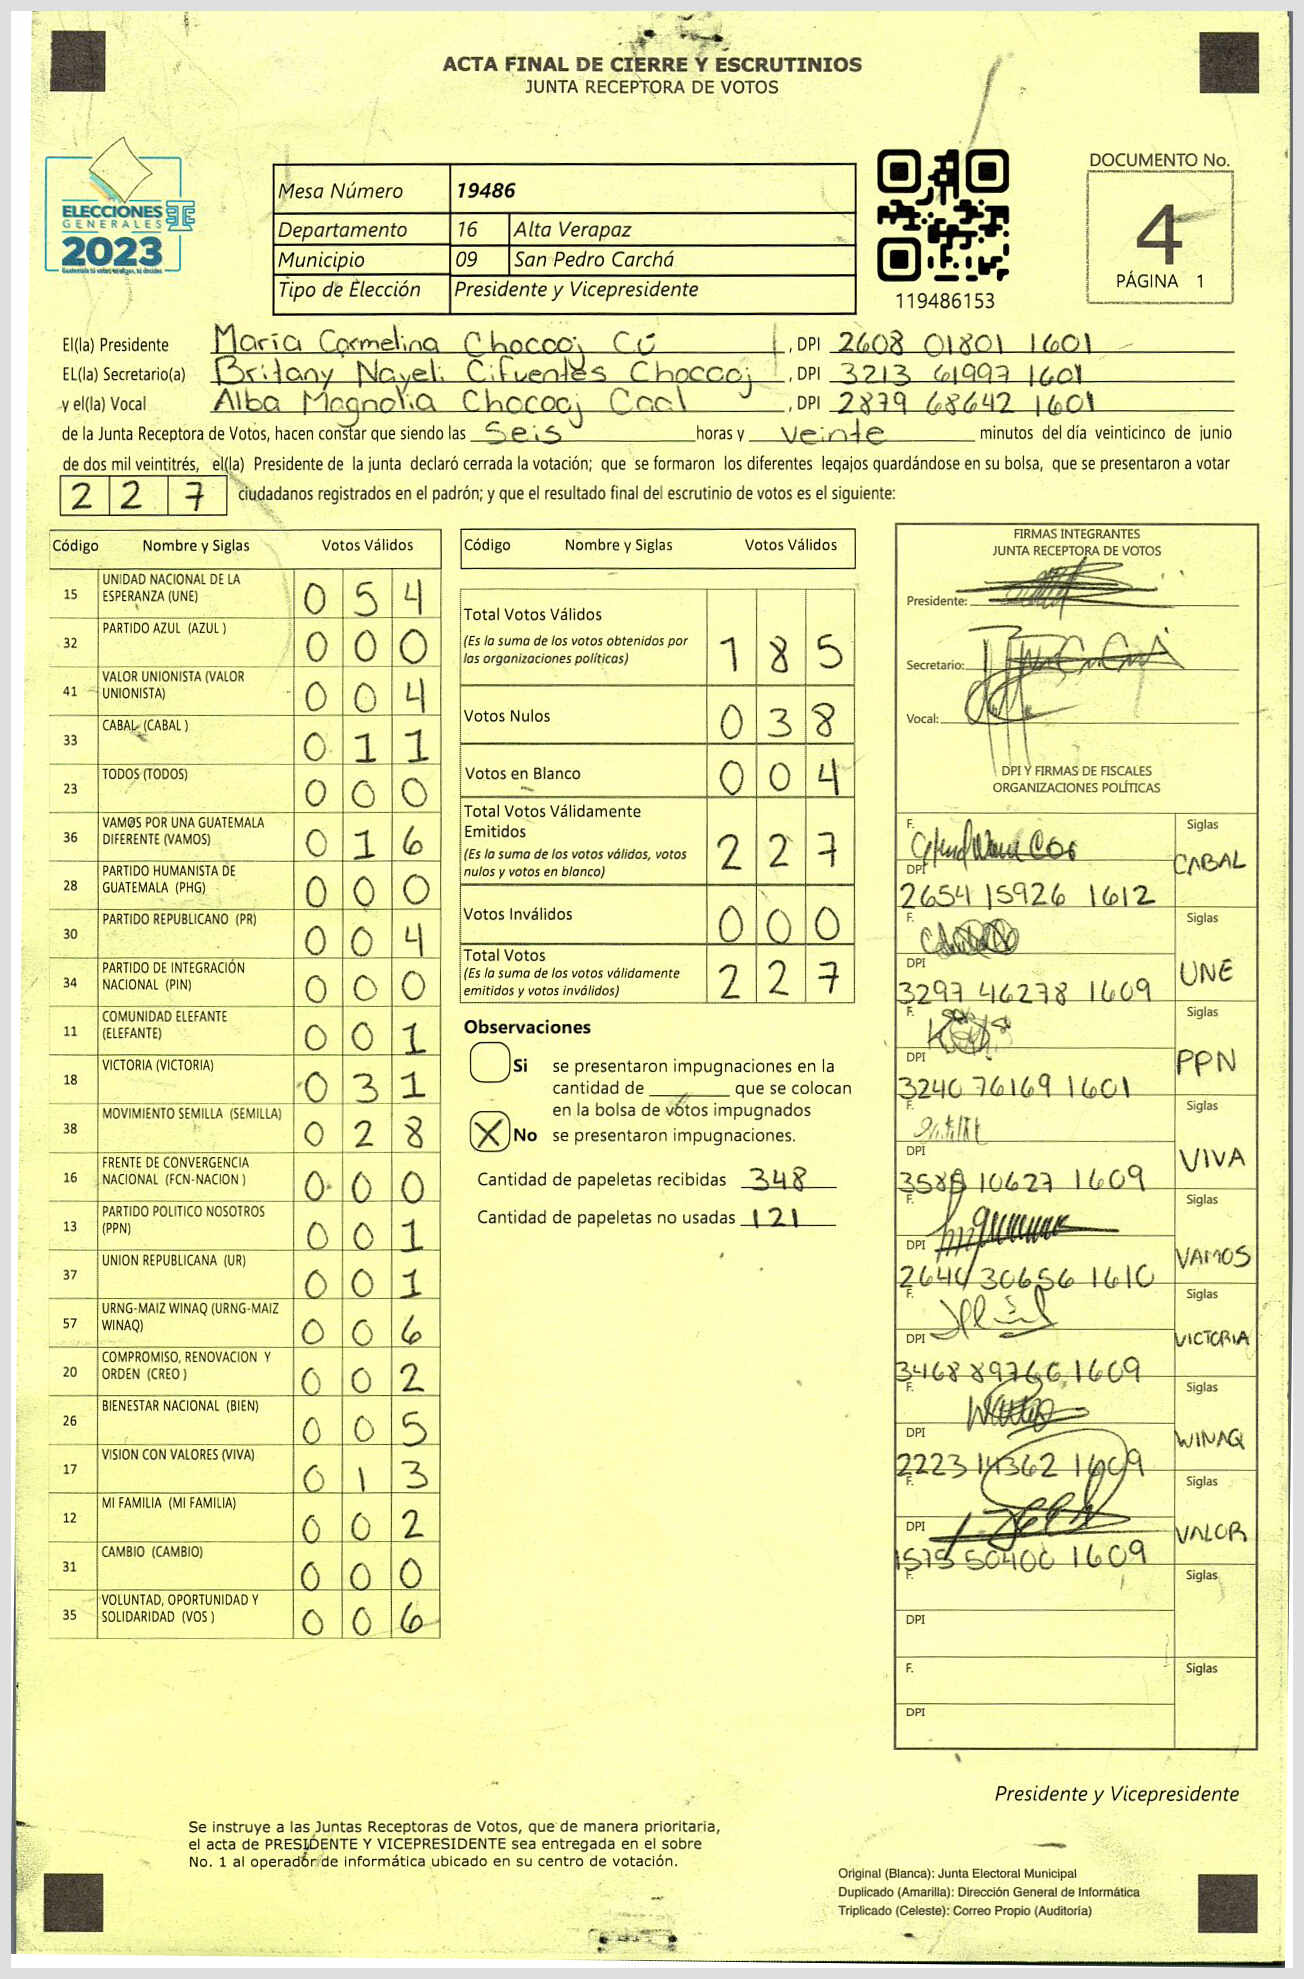 ACTA FINAL DE CIERRE Y ESCRUTINIOS
JUNTA RECEPTORA DE VOTOS
ELECCIONES
GENERALES
2023
Mesa Número 19486
Departamento 16 Alta Verapaz
Municipio 09 San Pedro Carchá
Tipo de Elección Presidente y Vicepresidente
119486153
DOCUMENTO No.
4
PÁGINA 1
El(la) Presidente Maria Carmelina Chocooj Cú, DPI 2608 01801 1601
EL(la) Secretario(a) Britany Nayeli Cifuentes Chocooj, DPI 3213 61997 1601
y el(la) Vocal Alba Magnolia Chocooj Caal, DPI 2879 68642 1601
de la Junta Receptora de Votos, hacen constar que siendo las Seis horas y veinte minutos del día veinticinco de junio
de dos mil veintitrés, el(la) Presidente de la junta declaró cerrada la votación; que se formaron los diferentes legajos guardándose en su bolsa, que se presentaron a votar
227 ciudadanos registrados en el padrón; y que el resultado final del escrutinio de votos es el siguiente:
Código Nombre y Siglas Votos Válidos
15 UNIDAD NACIONAL DE LA ESPERANZA (UNE) 054
32 PARTIDO AZUL (AZUL ) 000
41 VALOR UNIONISTA (VALOR UNIONISTA) 004
33 CABAL (CABAL ) 011
23 TODOS (TODOS) 000
36 VAMOS POR UNA GUATEMALA DIFERENTE (VAMOS) 016
28 PARTIDO HUMANISTA DE GUATEMALA (PHG) 000
30 PARTIDO REPUBLICANO (PR) 004
34 PARTIDO DE INTEGRACIÓN NACIONAL (PIN) 000
11 COMUNIDAD ELEFANTE (ELEFANTE) 001
18 VICTORIA (VICTORIA) 031
38 MOVIMIENTO SEMILLA (SEMILLA) 028
16 FRENTE DE CONVERGENCIA NACIONAL (FCN-NACION ) 000
13 PARTIDO POLITICO NOSOTROS (PPN) 001
37 UNION REPUBLICANA (UR) 001
57 URNG-MAIZ WINAQ (URNG-MAIZ WINAQ) 006
20 COMPROMISO, RENOVACION Y ORDEN (CREO ) 002
26 BIENESTAR NACIONAL (BIEN) 005
17 VISION CON VALORES (VIVA) 013
12 MI FAMILIA (MI FAMILIA) 002
31 CAMBIO (CAMBIO) 000
35 VOLUNTAD, OPORTUNIDAD Y SOLIDARIDAD (VOS ) 006
Código Nombre y Siglas Votos Válidos
Total Votos Válidos
(Es la suma de los votos obtenidos por
las organizaciones políticas) 185
Votos Nulos 038
Votos en Blanco 004
Total Votos Válidamente
Emitidos
(Es la suma de los votos válidos, votos
nulos y votos en blanco) 227
Votos Inválidos 000
Total Votos
(Es la suma de los votos válidamente
emitidos y votos inválidos) 227
Observaciones
Si se presentaron impugnaciones en la
cantidad de ________ que se colocan
en la bolsa de votos impugnados
X No se presentaron impugnaciones.
Cantidad de papeletas recibidas 348
Cantidad de papeletas no usadas 121
FIRMAS INTEGRANTES
JUNTA RECEPTORA DE VOTOS
Presidente:
Secretario:
Vocal:
DPI Y FIRMAS DE FISCALES
ORGANIZACIONES POLÍTICAS
F. Siglas
DPI CABAL
2654 15926 1612
F. Siglas
DPI UNE
3297 46278 1609
F. Siglas
DPI PPN
3240 76169 1601
F. Siglas
DPI VIVA
10627 1609
F. Siglas
DPI VAMOS
2640 30656 1610
F. Siglas
DPI VICTORIA
3468 89766 1609
F. Siglas
DPI WINAQ
2223 14362 1609
F. Siglas
DPI VALOR
1575 50400 1609
F. Siglas
DPI
F. Siglas
DPI
Presidente y Vicepresidente
Se instruye a las Juntas Receptoras de Votos, que de manera prioritaria,
el acta de PRESIDENTE Y VICEPRESIDENTE sea entregada en el sobre
No. 1 al operador de informática ubicado en su centro de votación.
Original (Blanca): Junta Electoral Municipal
Duplicado (Amarilla): Dirección General de Informática
Triplicado (Celeste): Correo Propio (Auditoría)